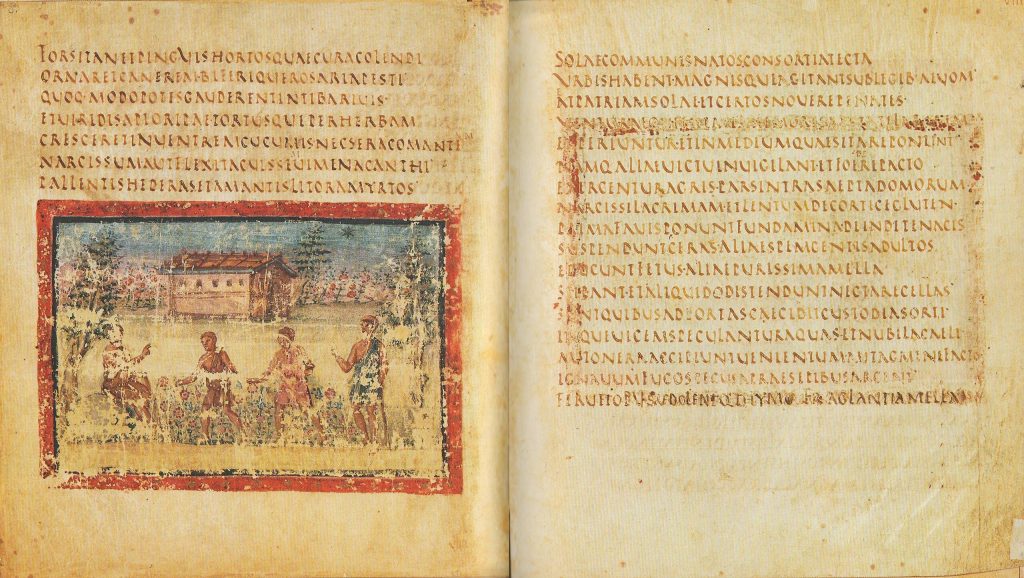 FORSITANETPINGVISHORTOSQVAECVRACOLENDI
ORNARETCANEREMBIFERIQVEROSARIAPESTI
QVOQ·MODOPOTISGAVDERENTINTIBARIVIS·
ETVIRIDISAPIORIPAETORTVSQVEPERHERBAM
CRESCERETINVENTREMCVCVMISNECSERACOMANTE
NARCISSVMAVTFLEXITACVISSEVIMENACANTHI
PALLENTISHEDERASETAMANTISLITORAMYRTOS
SOLAECOMMVNISNATOSCONSORTIATECTA
VRBISHABENT·MAGNISQVEAGITANTSVBLEGIB·AEVOM
ETPATRIAMSOLAEETCERTOSNOVEREPENATES·
EXPERIVNTVR·ETINMEDIVMQVAESITAREPONVNT
NAMQ·ALIAEVICTVINVIGILANT·ETFOEDEREPACTO
EXERCENTVRAGRIS·PARSINTRASAEPTADOMORVM
NARCISSILACRIMAM·ETLENTVMDECORTICEGLVTEN·
PRIMAFAVISPONVNTFVNDAMINADEINDETENACIS
SVSPENDVNTCERAS·ALIAESPEMGENTISADVLTOS
EDVCVNTFETVS·ALIAEPVRISSIMAMELLA
STIPANT·ETLIQVIDODISTENDVNTNECTARECELLAS
SVNTQVIBVSADPORTASCECIDITCVSTODIASORTI
INQVEVICEMSPECVLANTVRAQVASETNVBILACAELI
AVTONERAACCIPIVNTVENIENTVMAVTAGMINEFACTO
IGNAVVMFVCOSPECVSAPRAESEPIBVSARCENT